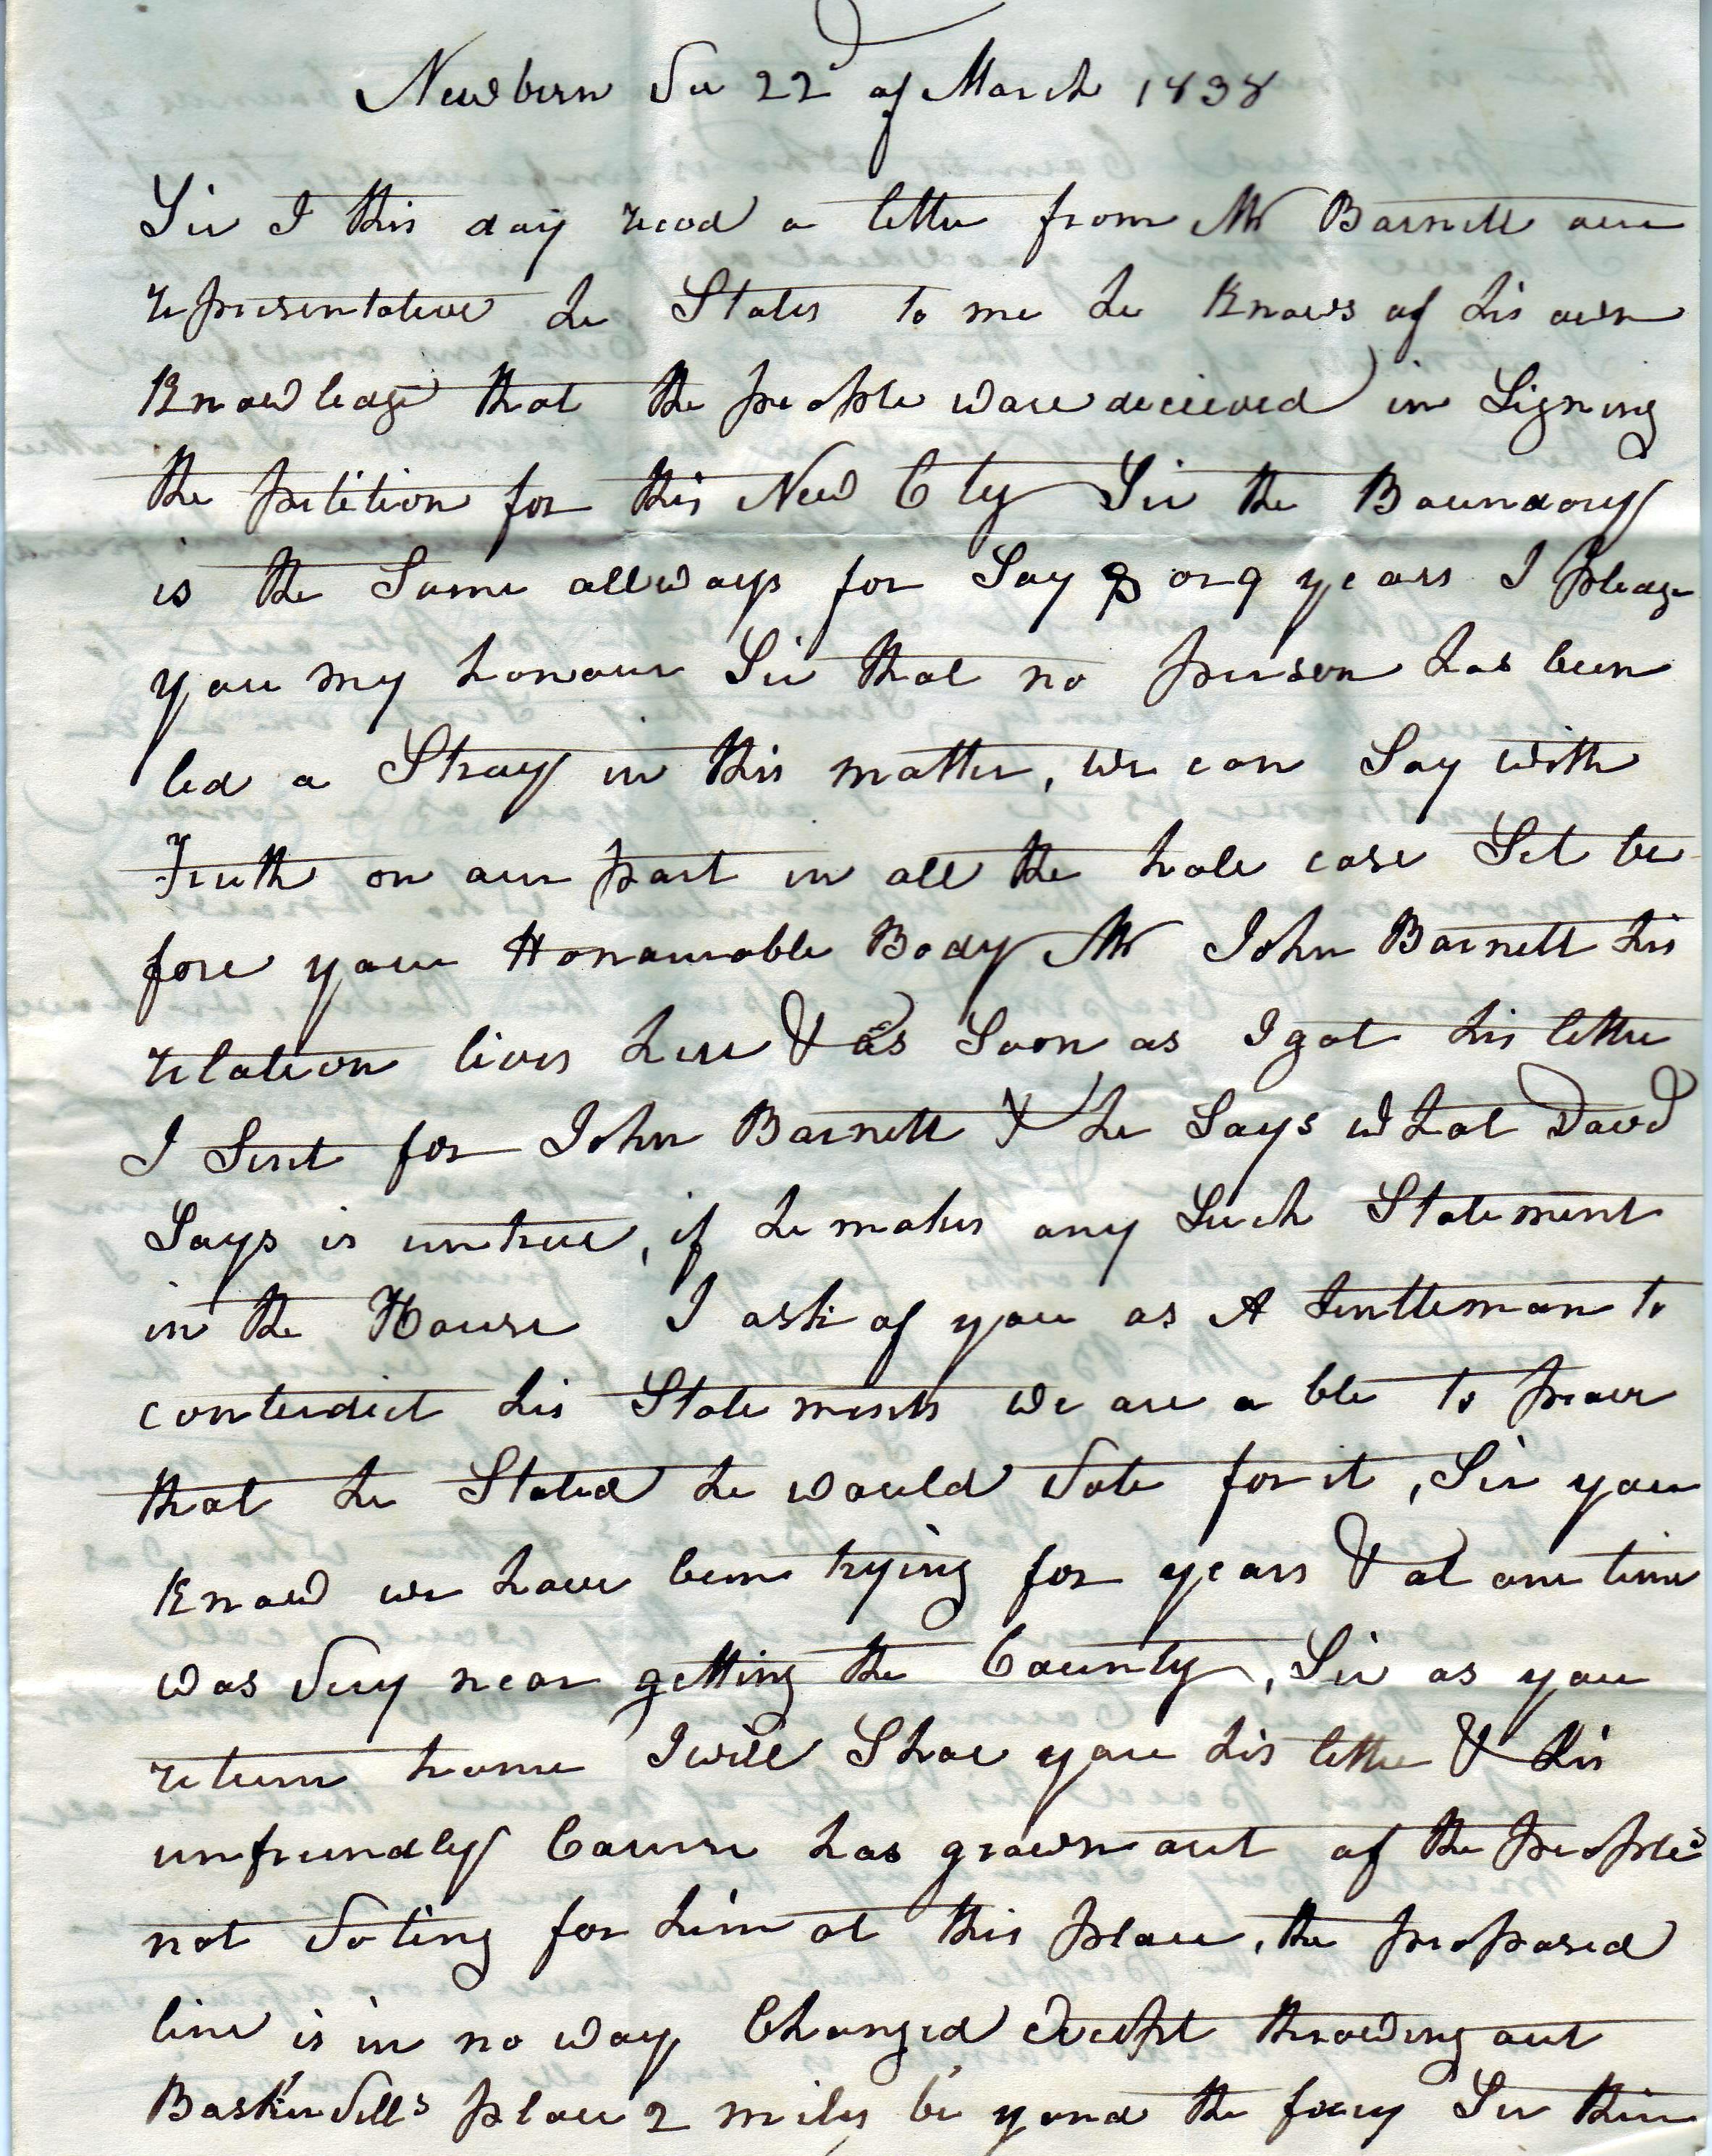 Newbern Va 22d of March 1838
Sir I this day recd a letter from Mr Barnett our
representative he States to me he Knows of his own
Knowledge that the people ware decieved in Signing
the petition for this New Cty Sir the Boundary
is the Same allways for Say 8 or 9 years I pledge
you my honour Sir that no person has been
led a Stray in this matter, we can Say with
Truth on our part in all the hole case Set be
fore your Honourable Body Mr John Barnett his
relation lives here & as Soon as I got his letter
I Sent for John Barnett & he Says what Davd
Says is untrue, if he makes any Such Statement
in the House I ask of you as A Gentleman to
conterdict his Statements we are a ble to prove
that he Stated he would Vote for it, Sir you
Know we have been trying for years & at one time
was Very near getting the County, Sir as you
return home I will Shoe you his letter & his
unfriendly Course has grown out of the peoples
not Voting for him at this place, the proposed
line is in no way Changed Except throwing out
Baskervills place 2 miles be yond the fery Sir thire